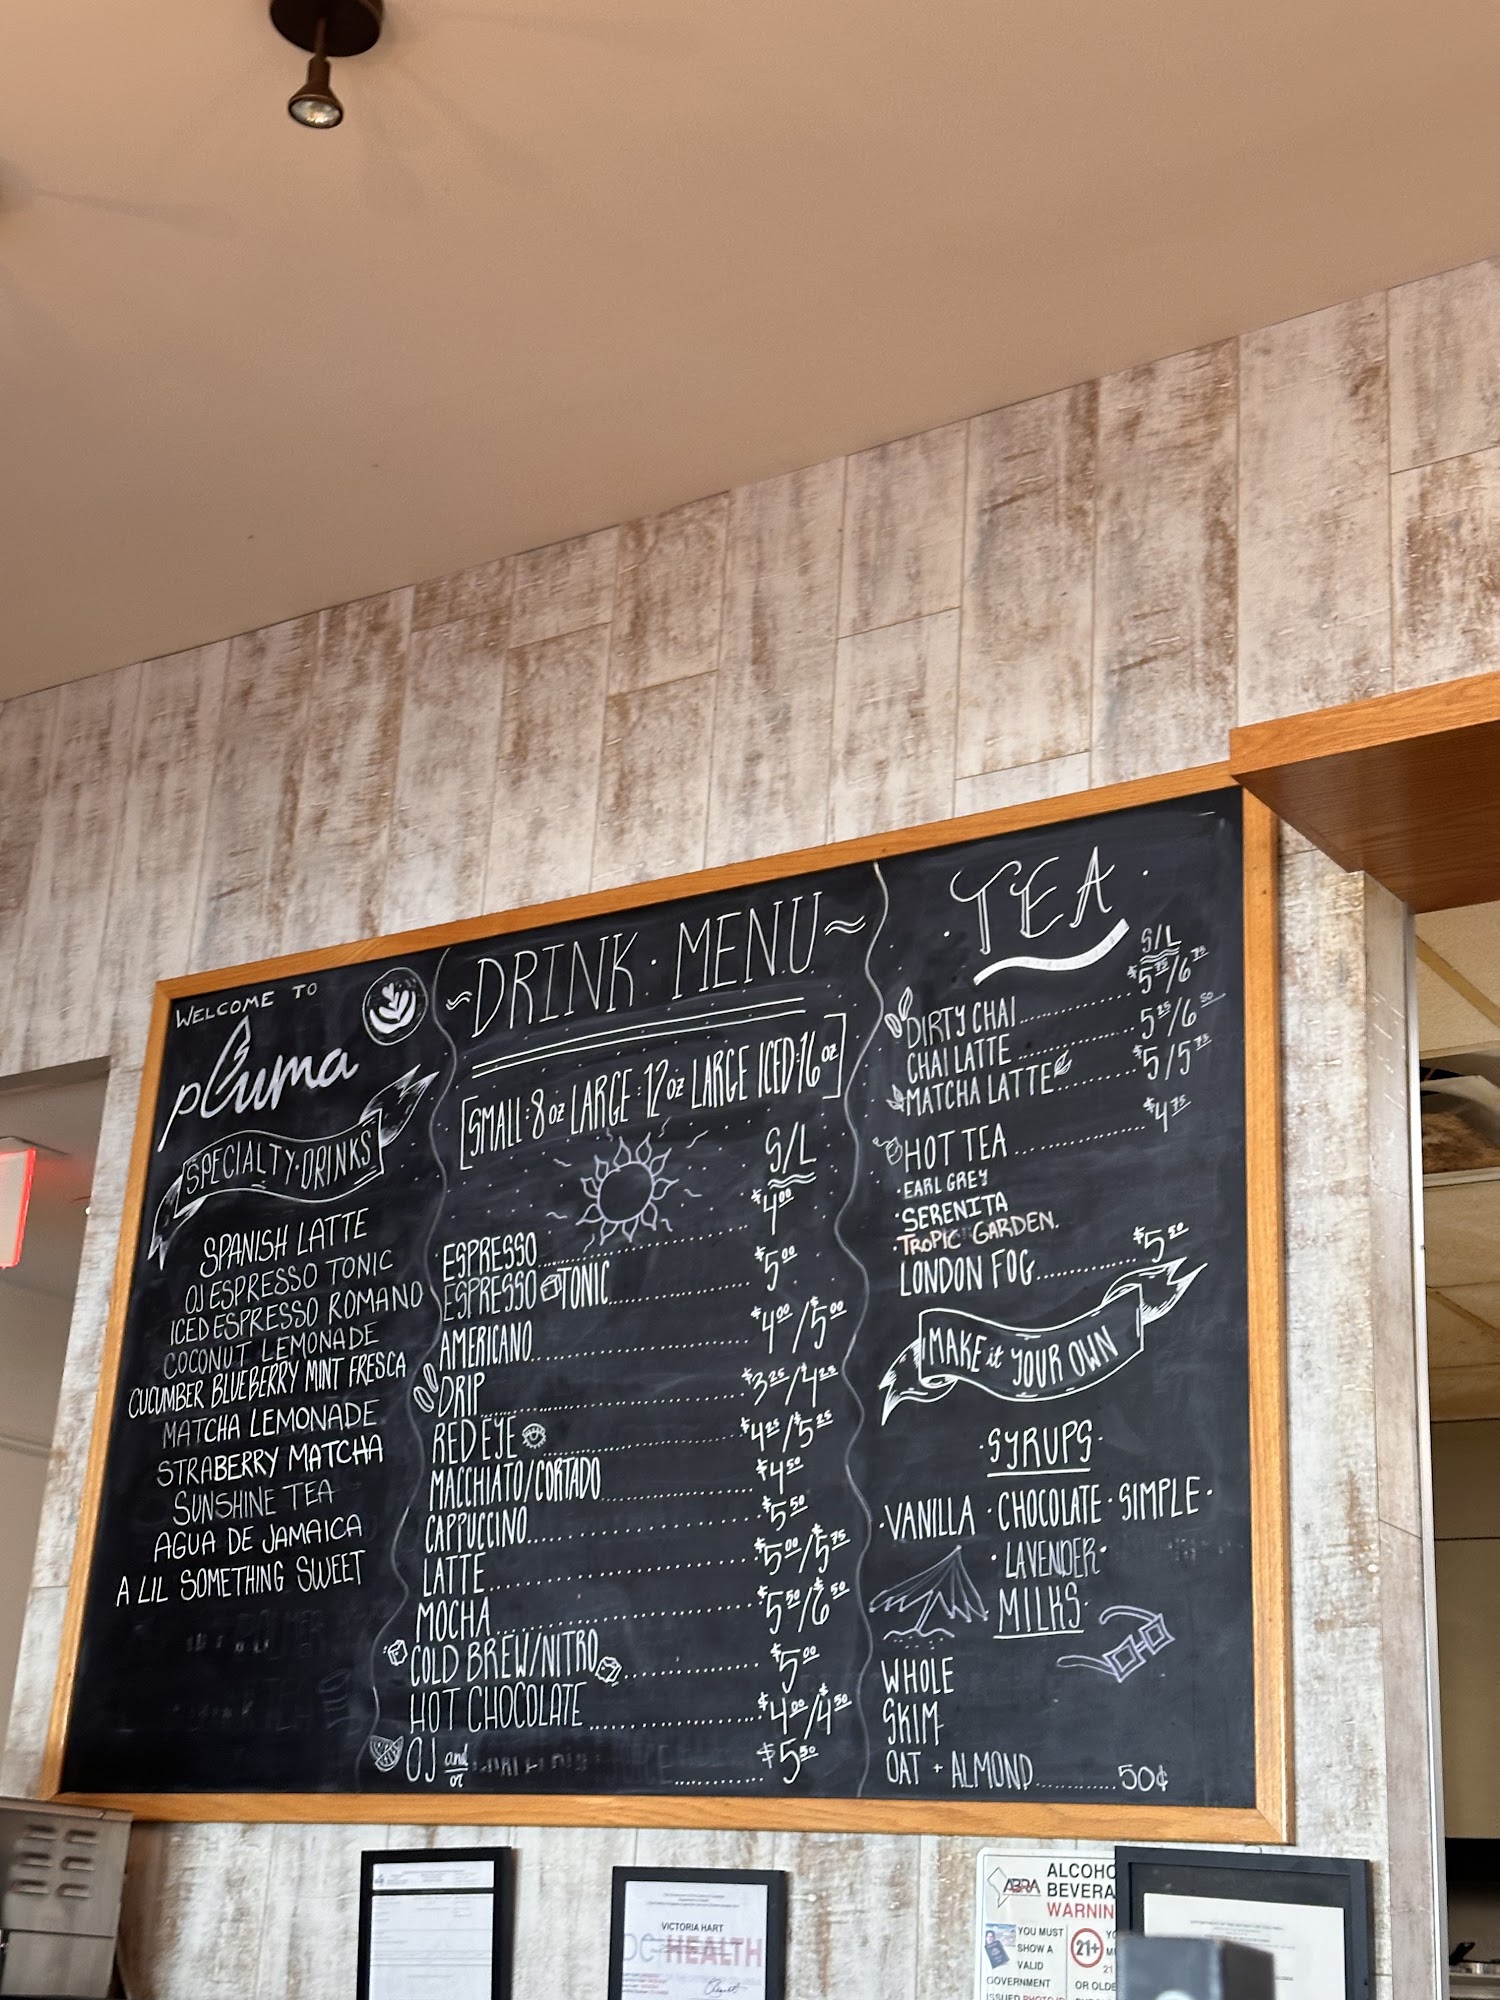 WELCOME TO
pluma
SPECIALTY · DRINKS
SPANISH LATTE
OJ ESPRESSO TONIC
ICED ESPRESSO ROMANO
COCONUT LEMONADE
CUCUMBER BLUEBERRY MINT FRESCA
MATCHA LEMONADE
STRABERRY MATCHA
SUNSHINE TEA
AGUA DE JAMAICA
A LIL SOMETHING SWEET
~DRINK · MENU~
[SMALL: 8oz LARGE: 12oz LARGE ICED: 16oz]
S/L
ESPRESSO.......... $4.00
ESPRESSO TONIC.......... $5.00
AMERICANO.......... $4.00/$5.00
DRIP.......... $3.25/$4.25
RED EYE.......... $4.25/$5.25
MACCHIATO/CORTADO.......... $4.50
CAPPUCCINO.......... $5.50
LATTE.......... $5.00/$5.75
MOCHA.......... $5.50/$6.50
COLD BREW/NITRO.......... $5.00
HOT CHOCOLATE.......... $4.00/$4.50
OJ and/or .......... $5.50
· TEA ·
S/L
DIRTY CHAI.......... $5.75/6.75
CHAI LATTE.......... 5.25/6.50
MATCHA LATTE.......... $5/5.75
HOT TEA.......... $4.75
· EARL GREY
· SERENITA
· TROPIC GARDEN.
LONDON FOG.......... $5.50
MAKE it YOUR OWN
· SYRUPS ·
· VANILLA · CHOCOLATE · SIMPLE ·
· LAVENDER ·
MILKS
WHOLE
SKIM
OAT + ALMOND.......... 50¢
VICTORIA HART
DC HEALTH
ABRA
ALCOHO
BEVERA
WARNIN
YOU MUST
SHOW A
VALID
GOVERNMENT
ISSUED PHOTO
21+
OR OLDE